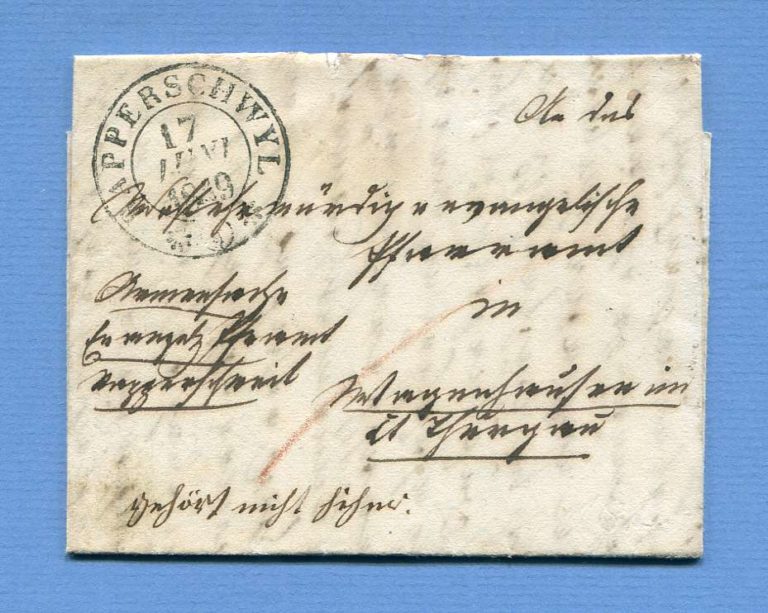 RAPPERSCHWYL
17
JUNI
1849
An das
Wohlehrwürdige evangelische
Pfarramt
in
Wagenhausen im
Ct Thurgau
Armensache
Evangel Pfarramt
Rapperschweil
gehört nicht hieher.